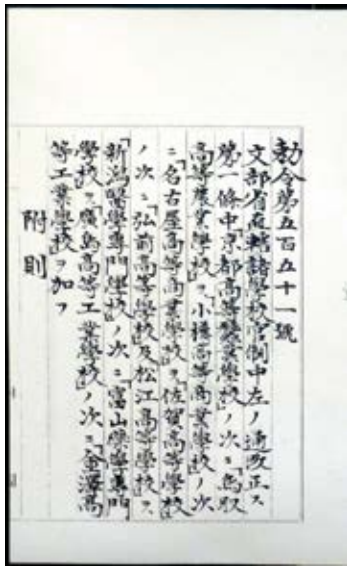 勅令第五百五十一號
文部省直轄諸學校官制中左ノ通改正ス
第一條中「京都高等蠶業學校」ノ次ニ「鳥取
高等農業學校」ヲ「小樽高等商業學校」ノ次
ニ「名古屋高等商業學校」ヲ「佐賀高等學校」
ノ次ニ「弘前高等學校」及「松江高等學校」ヲ
「新潟醫學專門學校」ノ次ニ「富山藥學專門
學校」ヲ「廣島高等工業學校」ノ次ニ「金澤高
等工業學校」ヲ加フ
附則